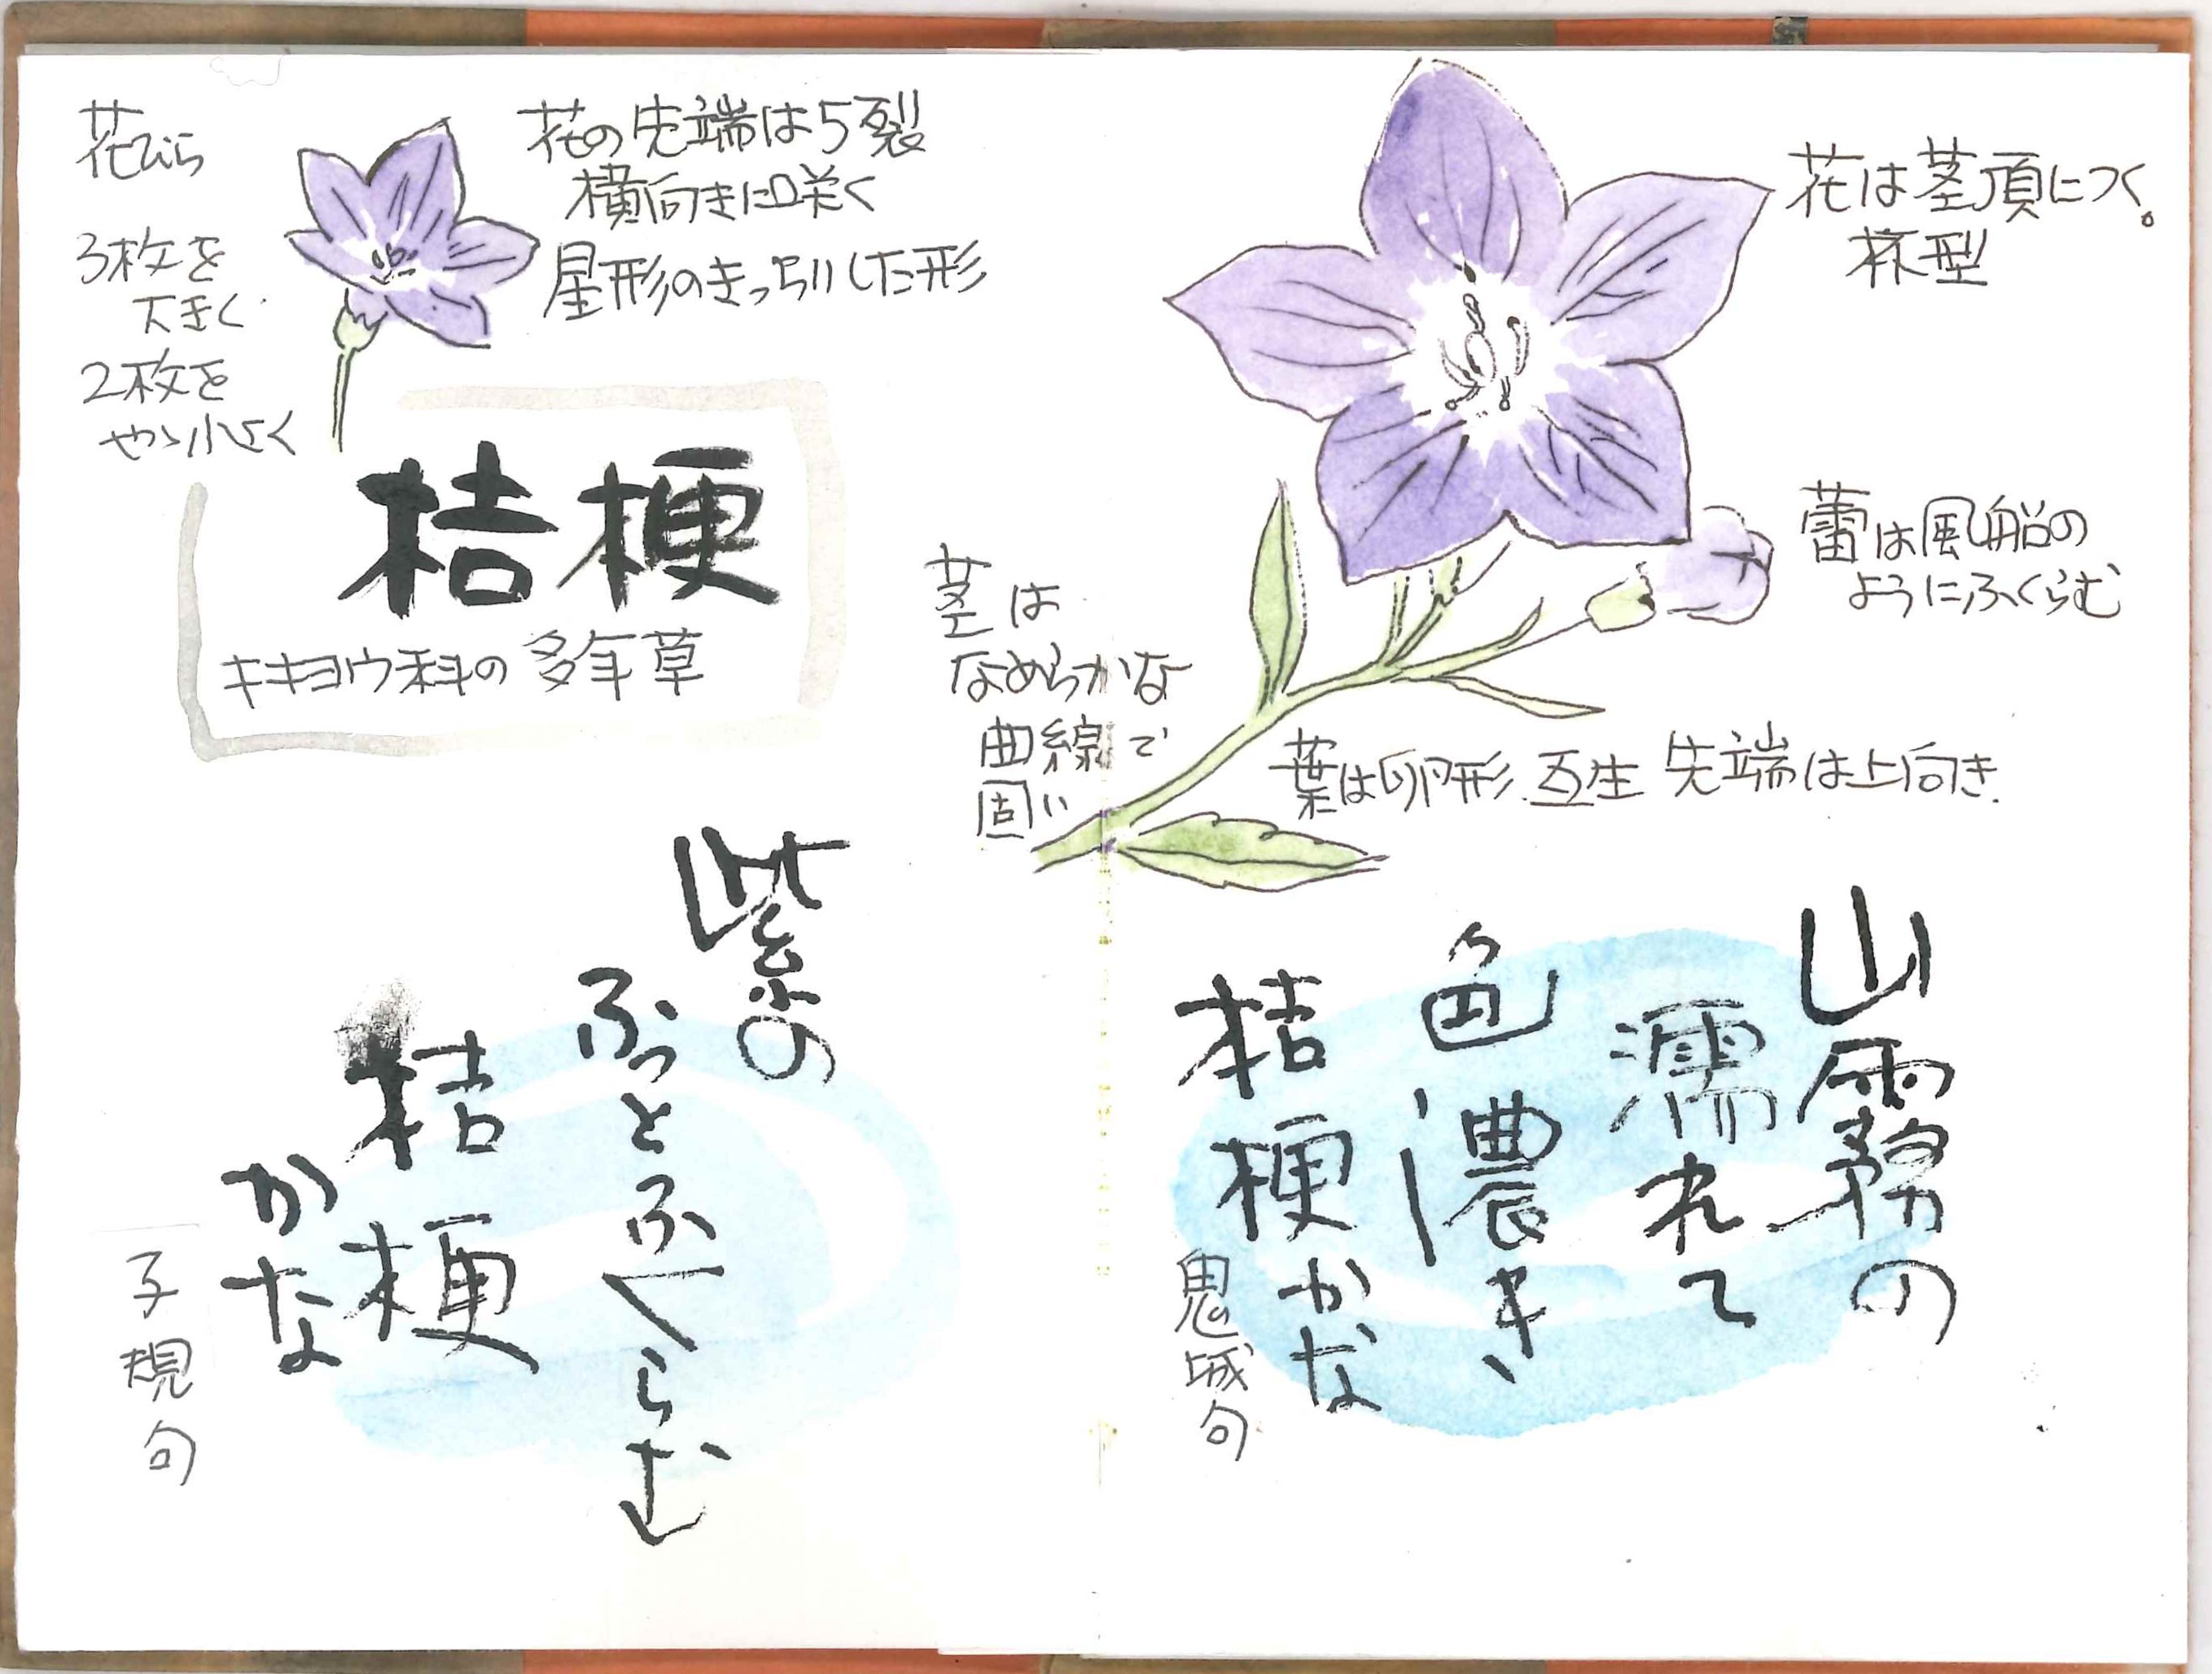 花びら
3枚を
大きく
2枚を
やゝ小さく
花の先端は5裂
横向きに咲く
星形のきっちりした形
桔梗
キキョウ科の多年草
紫の
ふっとふくらむ
桔梗
かな
子規句
花は茎頂につく。
杯型
蕾は風船の
ようにふくらむ
茎は
なめらかな
曲線で
固い
葉は卵形.互生 先端は上向き.
山霧の
濡れて
色濃き
桔梗かな
鬼城句